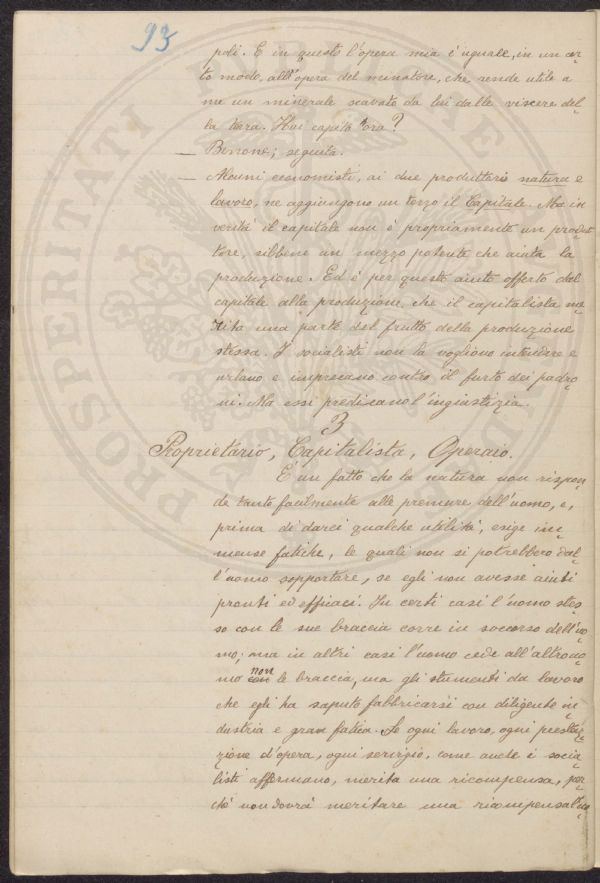 93
poli. E in questo l'opera mia è uguale, in un cer-
to modo, all'opera del minatore, che rende utile a
me un minerale scavato da lui dalle viscere del-
la terra. Hai capito ora?
— Benone; seguita.
— Alcuni economisti, ai due produttori natura e
lavoro, ne aggiungono un terzo il Capitale. Ma in
verità il capitale non è propriamente un produt-
tore, sibbene un mezzo potente che aiuta la
produzione. Ed è per questo aiuto offerto dal
capitale alla produzione, che il capitalista me-
rita una parte del frutto della produzione
stessa. I socialisti non la vogliono intendere e
urlano e imprecano contro il furto dei padro-
ni. Ma essi predicano l'ingiustizia.
3
Proprietario, Capitalista, Operaio.
È un fatto che la natura non rispon-
de tanto facilmente alle premure dell'uomo, e,
prima di darci qualche utilità, esige im-
mense fatiche, le quali non si potrebbero dal-
l'uomo sopportare, se egli non avesse aiuti
pronti ed efficaci. In certi casi l'uomo stes-
so con le sue braccia corre in soccorso dell'uo-
mo; ma in altri casi l'uomo cede all'altro uo-
mo non le braccia, ma gli stumenti da lavoro
che egli ha saputo fabbricarsi con diligente in-
dustria e gran fatica. Se ogni lavoro, ogni presta-
zione d'opera, ogni servigio, come anche i socia-
listi affermano, merita una ricompensa, per-
chè non dovrà meritare una ricompensa l'uo-
PROSPERITATI PUBLICAE